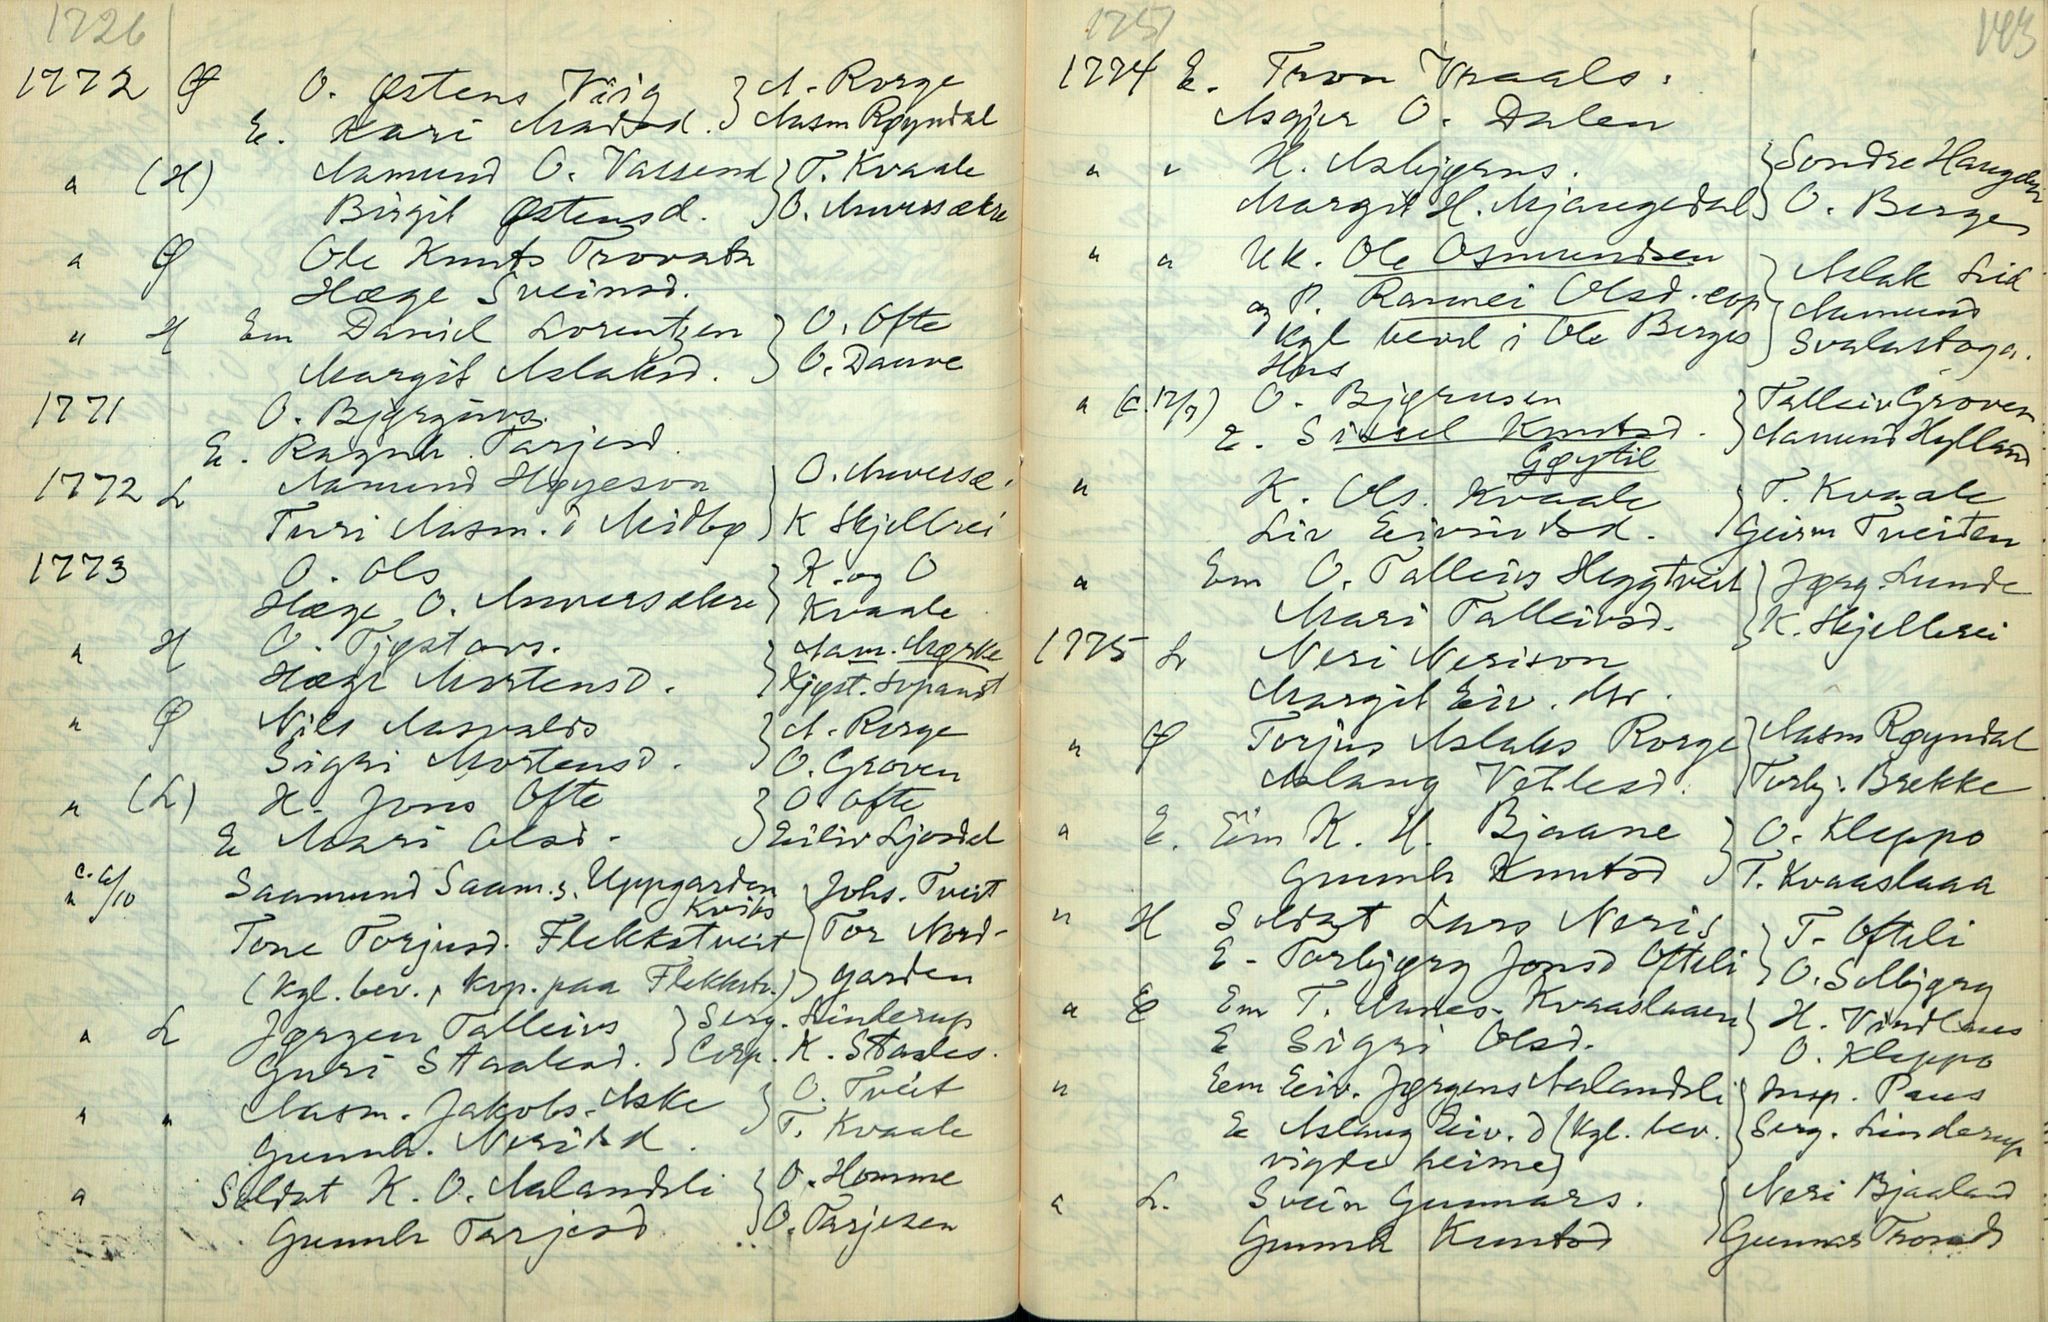 1726
1772 Ø O. Østens Viig } A. Rorge
E. Kari Madsd. } Aasm Røyndal
" (H) Aamund O. Vassend } T. Kvaale
Birgit Østensd. } O. Anversækre
" Ø Ole Knuts Trovatn
Hæge Sveinsd.
" H Em Daniel Lorentzen } O. Ofte
Margit Aslaksd. } O. Dauve
1771 O. Bjørgúvs.
E. Ragnh. Tarjesd.
1772 L Aamund Høyeson } O. Anversæ.
Turi Aasm. d Midbø } K Skjellrei
1773 O. Ols } K. og O
Hæge O. Anversækre } Kvaale
" H O. Tjøstovs. } Aam. Mørke
Hæge Mortensd. } Kjøst.
" Ø Nils Aasvalds } A. Rorge
Sigri Mortensd. } O. Groven
" (L) H. Jons Ofte } O Ofte
E Mari Olsd. } Eiliv Ljosdal
c. 6/10
" Saamund Saam.s. Uppgarden } Johs. Tveit
Kvits
Tone Torjusd. Flekkstveit } Tor Nord-
(Kgl. bev., kop. paa Flekkstv.) } garden
" L Jørgen Talleivs } Serg. Linderup
Guri Staalesd. } Corp. K. Staales.
" " Aasm. Jakobs. Aske } O. Tveit
Gunnh. Nerisd. } T. Kvaale
" Soldat K. O. Aalandsli } O. Homme
Gunnh Tarjesd } O. Tarjesen
1751 143
1774 E. Tron Vraals.
Asgjer O. Dalen
" " H. Asbjørns. } Sondre Haugdn
Margit H. Mjaugedal } O. Berge
" " Uk. Ole Osmundsen } Aslak Lid
og P. Rannei Olsd. cop } Aamund
Kgl bevil i Ole Berges } Svalastoga.
Hus
" (c. 12/7) O. Bjørnsen } Talleiv Groven
E. Sissel Knutsd. } Aamund Hylland
Gøytil
" K. Ols. Kvaale } T. Kvaale
Liv Eivindsd. } Geirm Tveiten
" Em O. Talleivs Heggtveit } Jørg. Lunde
Mari Talleivsd. } K. Skjellrei
1775 L Neri Nerison
Margit Eiv. dtr.
" Ø Torjus Aslaks Rorge } Aasm Røyndal
Aslaug Vetlesd. } Torbj. Brekke
" E. Em K. H. Bjaane } O. Kleppo
Gunnh Knutsd } T. Kvaaslaaa
" H Soldat Lars Neris } T. Ofteli
E. Torbjørg Jonsd Ofteli } O. Selbjørg
" E Em T. Aanes. Kvaaslaaen } H. Vindlaus
E Sigri Olsd. } O. Kleppo
" Em Eiv. Jørgens Aalandsli } Insp. Paus
E Aslaug Eiv. d (Kgl. bev. } Serg. Linderup
vigde heime)
" L. Svein Gunnars. } Neri Bjaaland
Gunnh Knutsd } Gunnar Tronds